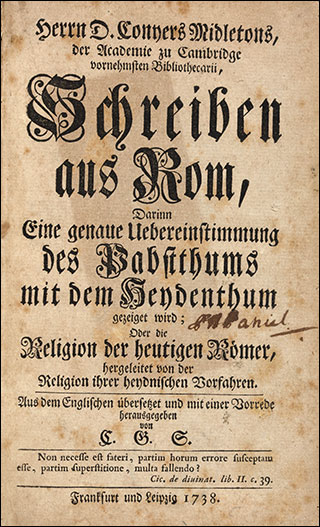 Herrn D. Conyers Midletons,
der Academie zu Cambridge
vornehmsten Bibliothecarii,
Schreiben
aus Rom,
Darinn
Eine genaue Uebereinstimmung
des Pabstthums
mit dem Heydenthum
gezeiget wird;
Oder die
Religion der heutigen Römer,
hergeleitet von der
Religion ihrer heydnischen Vorfahren.
Aus dem Englischen übersetzet und mit einer Vorrede
herausgegeben
von
C. G. S.
Non necesse est fateri, partim horum errore susceptum
esse, partim superstitione, multa fallendo?
Cic. de diuinat. lib. II. c. 39.
Franckfurt und Leipzig 1738.